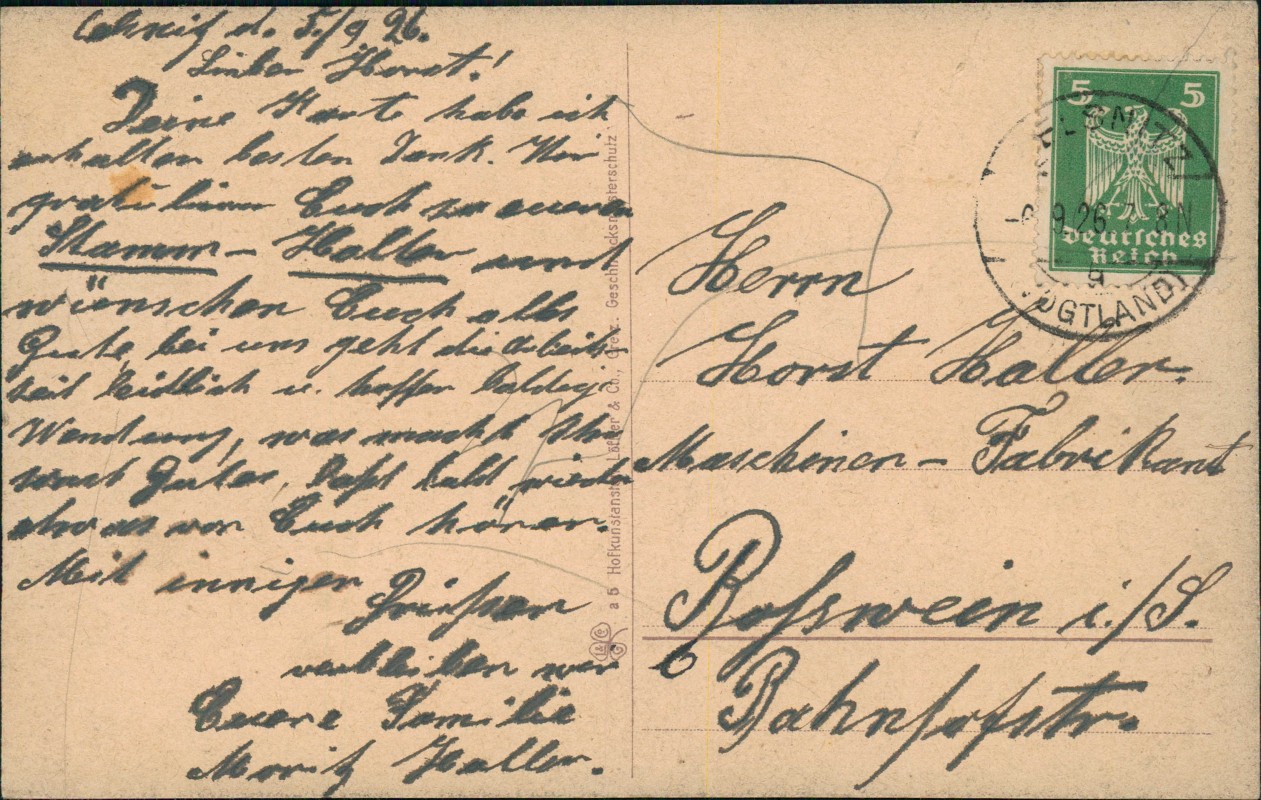 d. 5./9 26.
Lieber Horst!
Deine Karte habe ich
erhalten besten Dank. Wir
gratulieren Euch zu eueren
Stamm-Halter und
wünschen Euch alles
Gute, bei uns geht die Arbeits-
zeit leidlich u. hoffen baldig
Wendung, was macht Ihr
sonst Gutes, laßt bald wieder
etwas von Euch hören.
Mit innigen
Grüßen
verbleiben wir
Euere Familie
Moritz Haller.
a 5 Hofkunstanstalt Löffler & Co., Greiz. Geschmacksmusterschutz
L & Co G
5 5
Deutsches
Reich
-6.9.26.7-8N
a
(VOGTLAND)
Herrn
Horst Haller.
Maschinen-Fabrikant
Roßwein i./S.
Bahnhofstr.
6